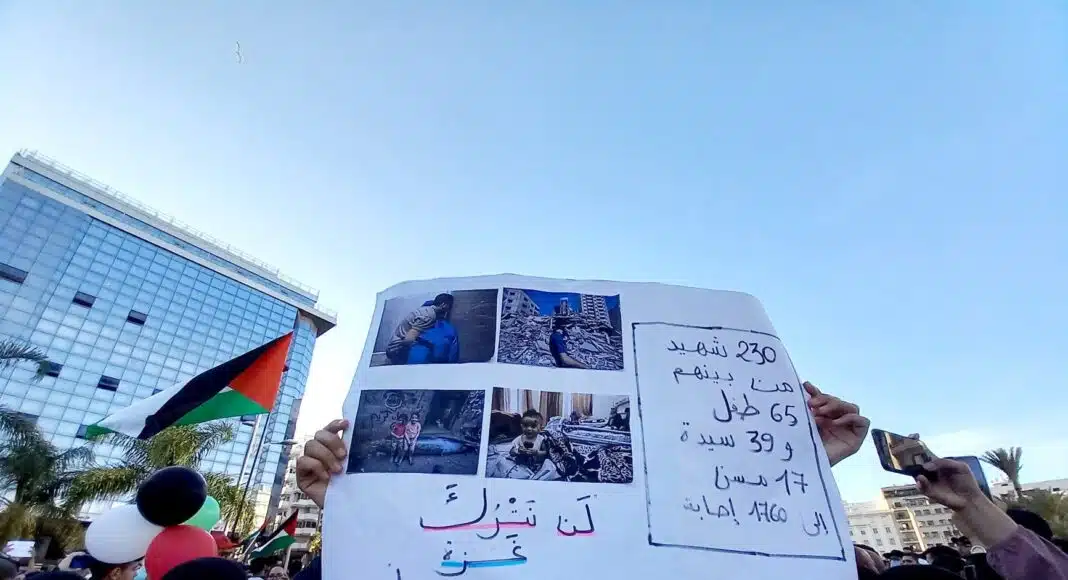 230 شهيد
من بينهم
65 طفل
و 39 سيدة
17 مسن
إلى 1760 إصابة
لَن نَتْرُكَ
غَزة